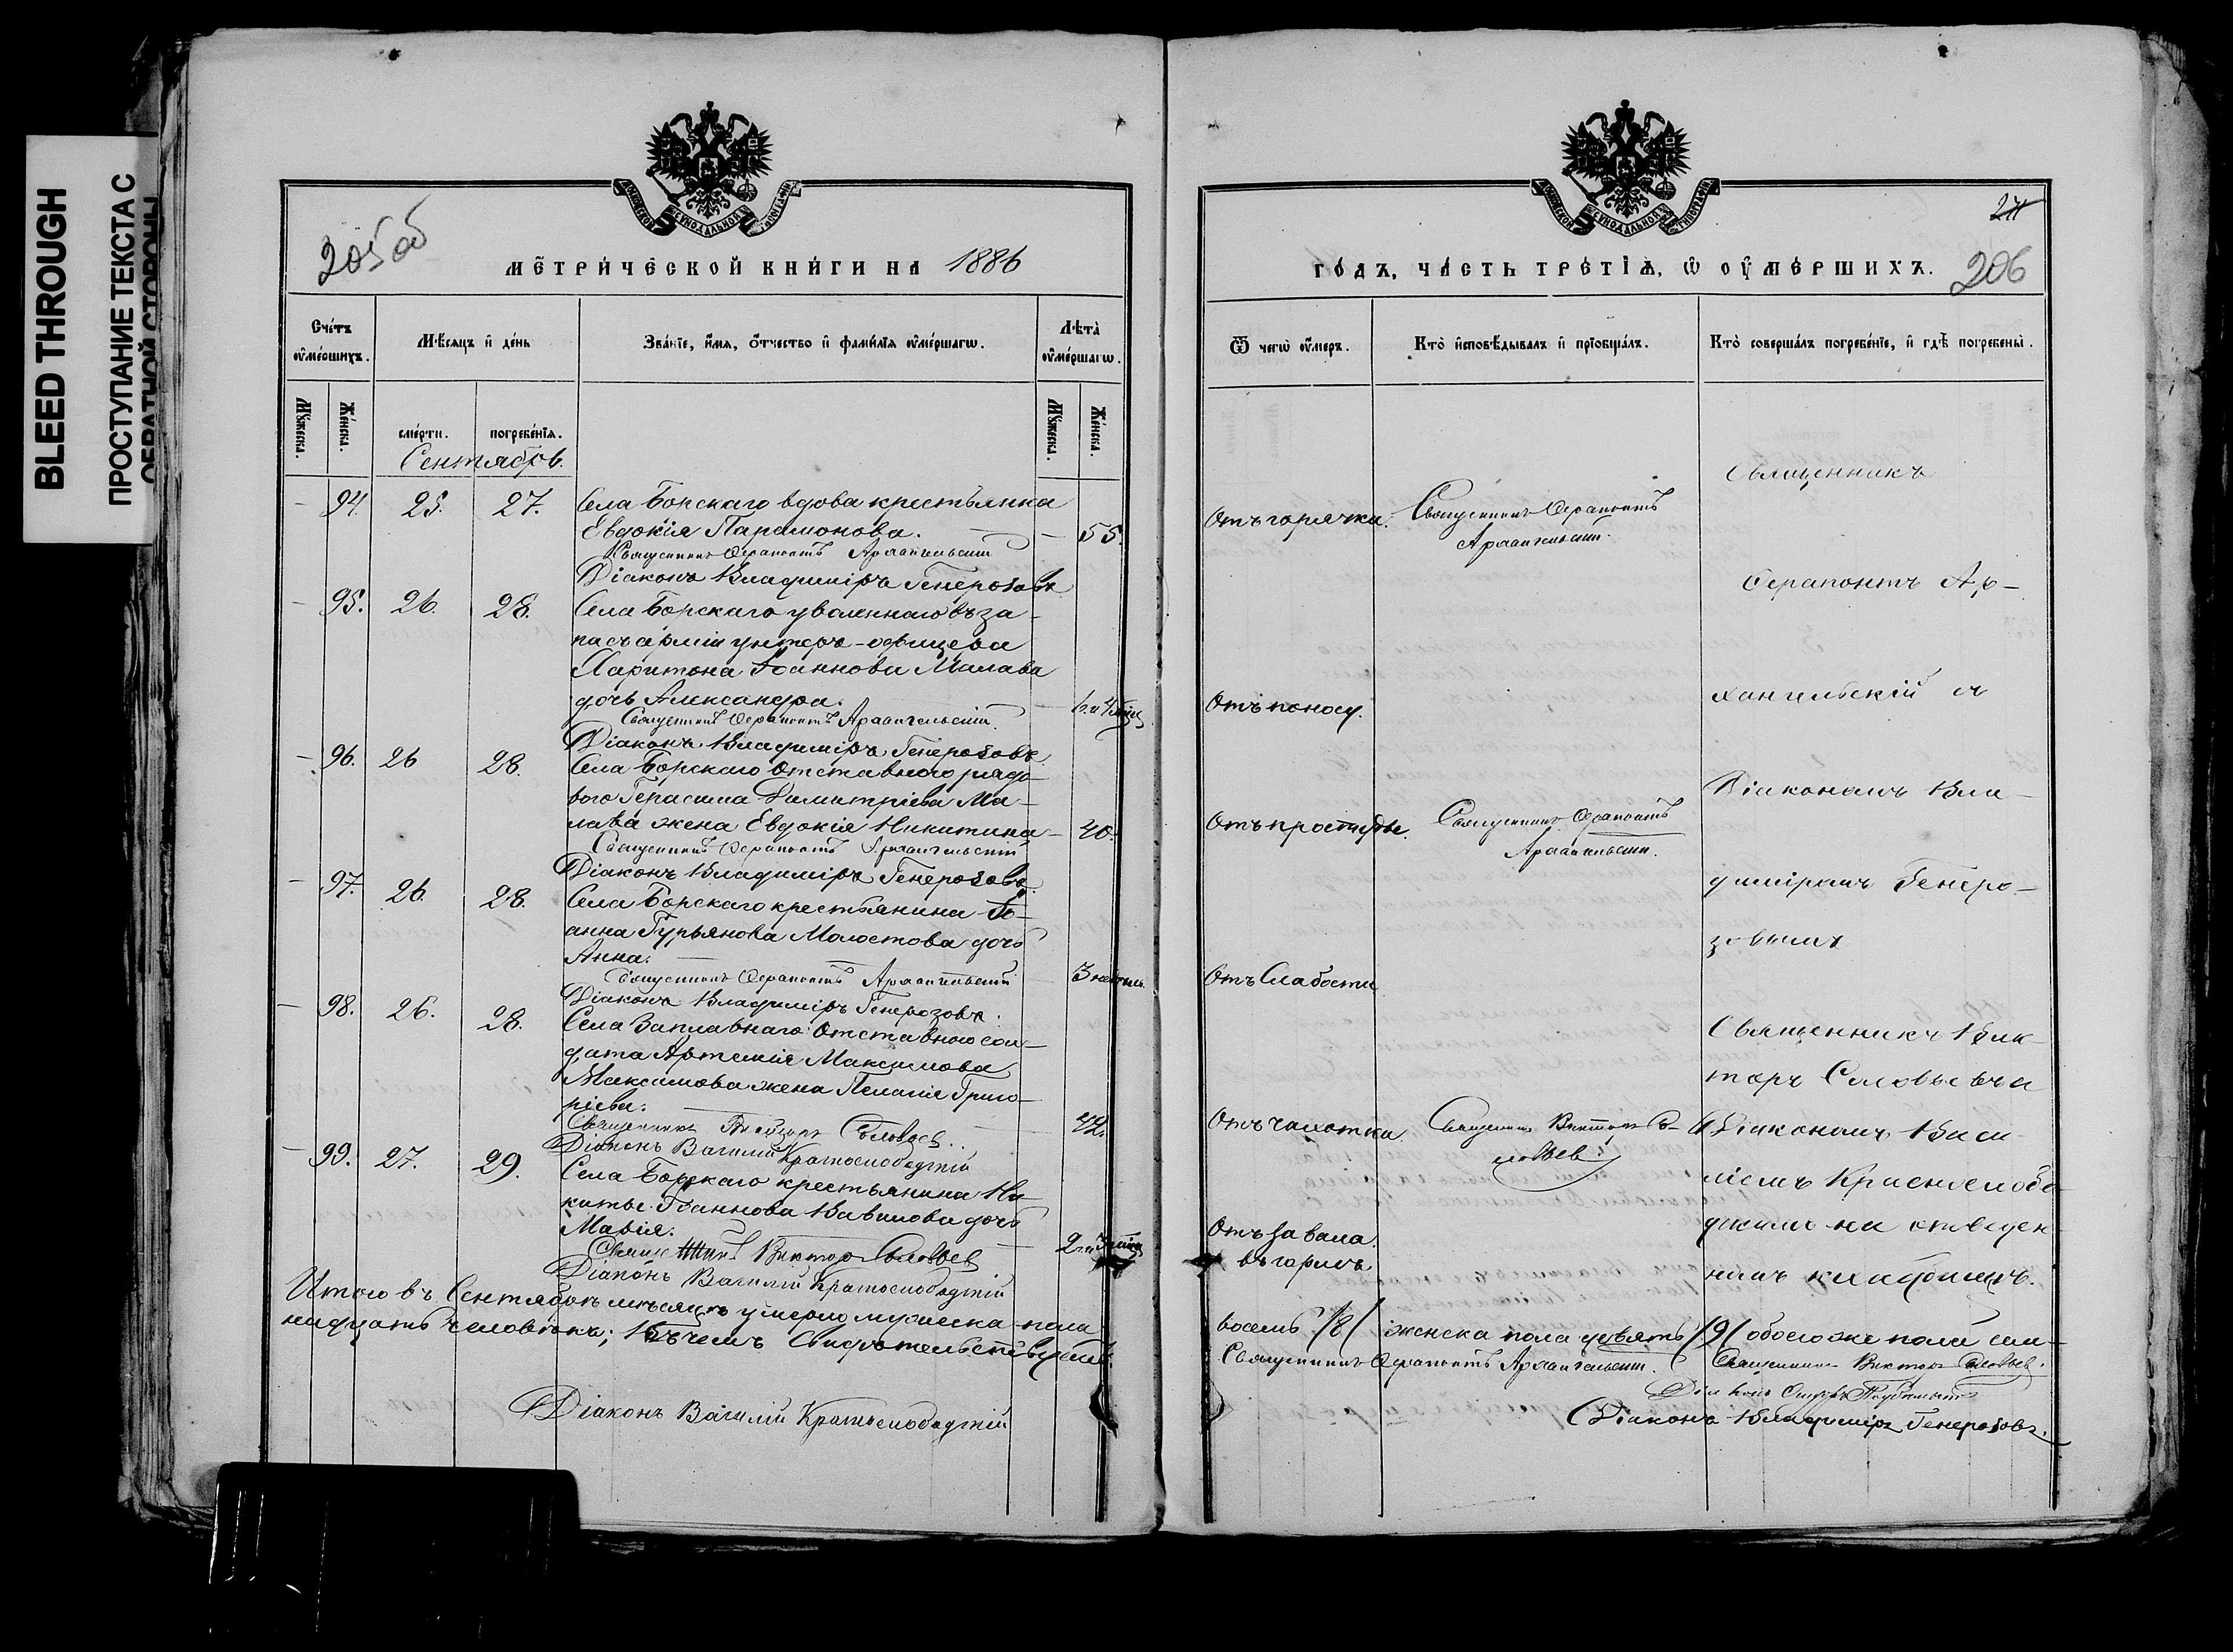 BLEED THROUGH
ПРОСТУПАНИЕ ТЕКСТА С
ОБРАТНОЙ СТОРОНЫ
205 об
МЕТРИЧЕСКОЙ КНИГИ НА 1886
Счетъ оумершихъ.
Мѣсяцъ и день
Званіе, имя, отчество и фамилія оумершагѡ.
Лѣта оумершагѡ.
Мужеска.
Женска.
смерти.
погребенія.
Мужеска.
Женска.
Сентябрь.
– 94. 25. 27. Села Борскаго вдова крестьянка
Евдокія Парамонова. – 55.
Священникъ Серапонтъ Архангельскій
Діаконъ Владиміръ Генерозовъ
– 95. 26. 28. Села Борскаго уволеннаго въ за-
пасъ арміи унтеръ-офицера
Харитона Іоаннова Малава
дочь Александра.
Священникъ Серапонтъ Архангельскій
Діаконъ Владиміръ Генерозовъ
– 96. 26 28. Села Борскаго отставного рядо-
вого Герасима Димитріева Ма-
лава жена Евдокія Никитина – 40.
Священникъ Серапонтъ Архангельскій
Діаконъ Владиміръ Генерозовъ
– 97. 26. 28. Села Борскаго крестьянина Іо-
анна Гурьянова Молостова дочь
Анна.
Священникъ Серапонтъ Архангельскій 3 недѣль
Діаконъ Владиміръ Генерозовъ.
– 98. 26. 28. Села Заплавнаго отставного сол-
дата Артемія Максимова
Максимова жена Пелагія Григо-
ріева.
Священникъ Викторъ Соловьев.
Діаконъ Василій Краснослободскій
– 99. 27. 29. Села Борскаго крестьянина Ни-
киты Іоаннова Вавилова дочь
Марія.
Священникъ Викторъ Соловьев
Діаконъ Василій Краснослободскій
Итого въ Сентябрѣ мѣсяцѣ умерло мужеска пола
надцать человѣкъ; Въ чемъ свидѣтельствуемъ.
Діаконъ Василій Краснослободскій
211
206
ГОДЪ, ЧАСТЬ ТРЕТІЯ, Ѡ ОУМЕРШИХЪ.
Ѿ чегѡ оумеръ.
Кто исповѣдывалъ и пріобщалъ.
Кто совершалъ погребеніе, и гдѣ погребены.
Священникъ
Отъ горячки. Священникъ Серапонтъ
Архангельскій.
Серапонтъ Ар-
Отъ поносу.
хангельскій съ
Діакономъ Вла-
Отъ простуды. Священникъ Серапонтъ
Архангельскій.
диміромъ Генеро-
зовымъ
Отъ слабости
Священникъ Вик-
торъ Соловьевъ и
Отъ чахотки. Священникъ Викторъ Со-
ловьев.
Діакономъ Васи-
ліемъ Краснослобо-
Отъ завала
въ горлѣ
дскимъ на отведен-
номъ кладбищѣ.
восемь /8/ женска пола девять /9/ обоего же пола сем-
Священникъ Серапонтъ Архангельскій. Священникъ Викторъ Соловьев.
Діаконъ Владиміръ Генерозовъ.